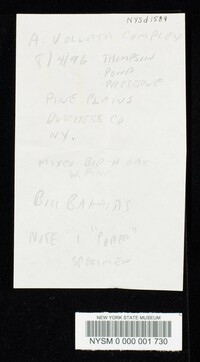 NYSd1584
A. VOLVATA COMPLEX
8/4/96 THOMPSON
POND
PRESERVE
PINE PLAINS
DUTCHESS CO
NY.
MIXED BIR H OAK
W. PINE
BILL BAKAITIS
NOTE 1 "POOR"
SPECIMEN
NEW YORK STATE MUSEUM
NYSM 0 000 001 730